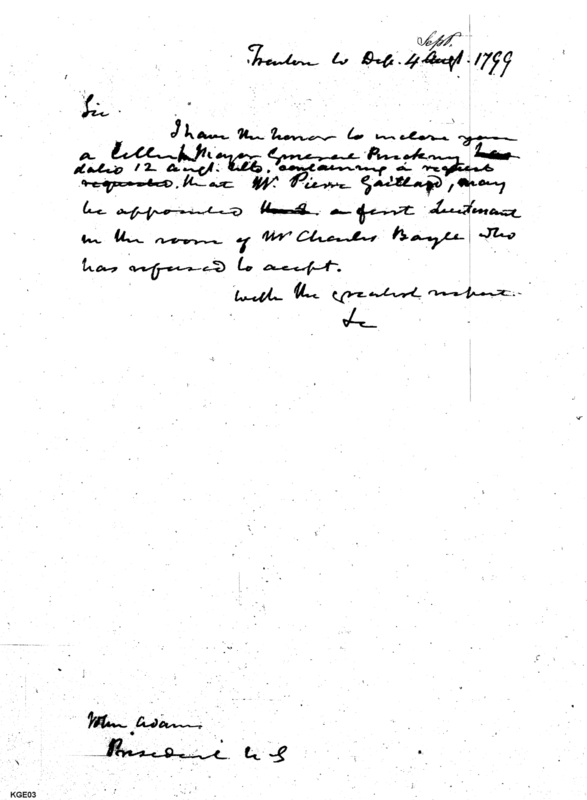 Trenton W Dep. 4 Sept. Augt. 1799
Sir.
I have the honor to inclose you
a letter fr Mayor General Pinckney has
dated 12 Augt. ulto. containing a request
requested. that Mr. Pierre Gaillard, may
be appointed a first Lieutenant
in the room of Mr Charles Bayle who
has refused to accept.
with the greatest respect.
&c
John Adams
President U S
KGE03